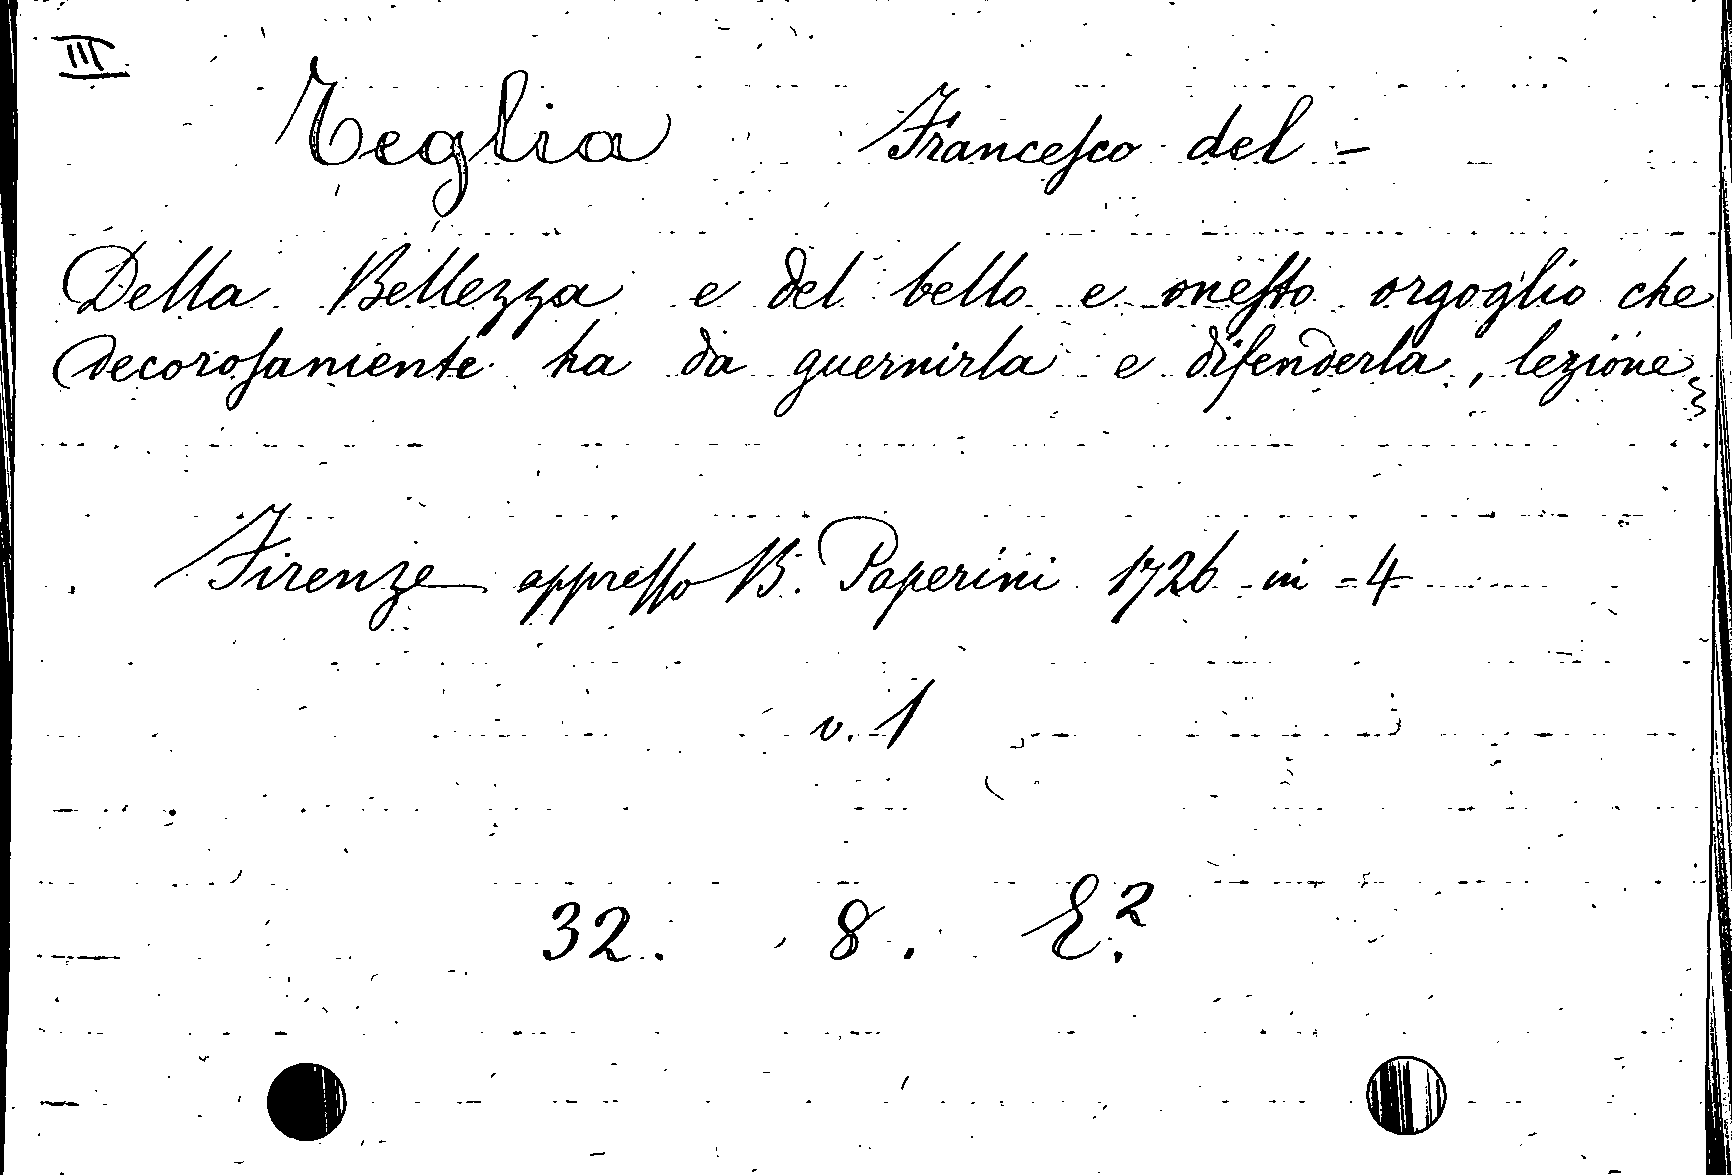 III
Teglia Francesco del -
Della Bellezza e del bello e onesto orgoglio che
decorosamente ha da guernirla e difenderla, lezione
Firenze appresso B. Paperini 1726 in - 4
v. 1
32. 8. E.2